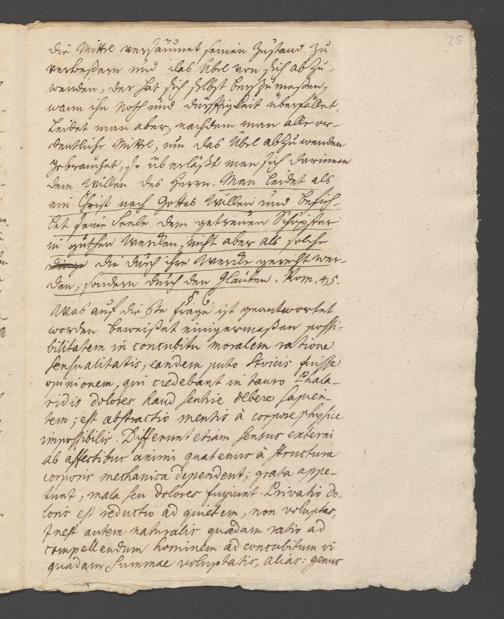 25
die Mittel versäumet seinen Zustand zu
verbeßern und das Übel von sich abzu-
wenden, der hat sich selbst beyzumeßen,
wann ihn Noth und dürfftigkeit überfället.
Leidet man aber, nachdem man alle or-
dentliche Mittel, um das Übel abzuwenden
gebrauchet, so überläßt man sich darinnen
dem Willen des Herrn. Man leidet als
ein Christ nach Gottes Willen und befieh-
let seine Seele dem getreuen Schöpffer
in guthen Werken, nicht aber als solche
die durch ihre Werke gerecht wer-
den, sondern durch den Glauben. Rom. 4,5.
§ 6.
Was auf die 6te Frage ist geantwortet
worden beweiset einigermaßen possi-
bilitatem in concubitu moralem ratione
sensualitatis, eandem puto Stoicis fuisse
opinionem, qui credebant in tauro Phala-
ridis dolores haud sentire debere sapien-
tem; est abstractio mentis à corpore physice
impossibilis. Differunt etiam sensus externi
ab affectibus animi quatenus à structura
corporis mechanica dependent; grata appe-
tunt, mala seu dolores fugiunt. Privatio do-
loris est reductio ad quietem, non voluptas,
Inest autem naturalis quaedam ratio ad
compellendum hominem ad concubitum vi
quadam summae voluptatis, alias: genus